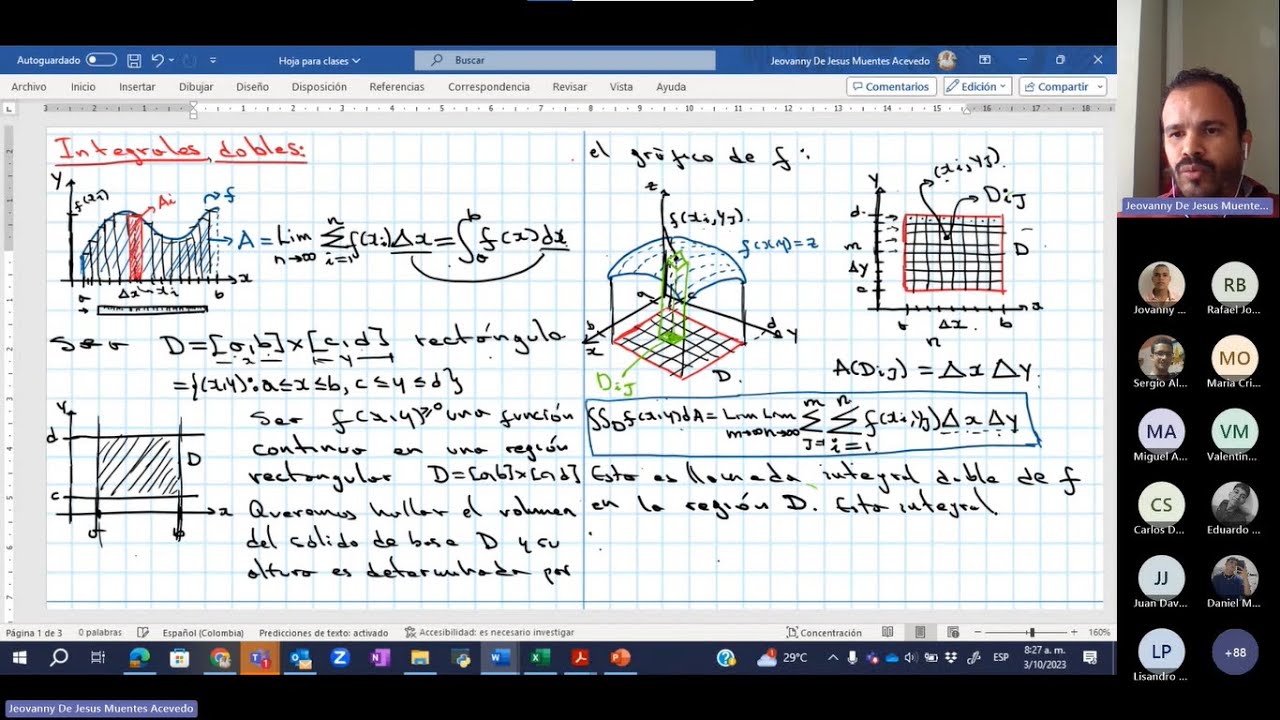 Autoguardado
Hoja para clases
Buscar
Jeovanny De Jesus Muentes Acevedo
Archivo Inicio Insertar Dibujar Diseño Disposición Referencias Correspondencia Revisar Vista Ayuda
Comentarios Edición Compartir
3 2 1 1 2 3 4 5 6 7 8 9 10 11 12 13 14 15 16 17 18
Integrales dobles:
y f(xi) Ai f
A = Lim n→∞ Σ i=1 n f(xi) Δx = ∫ a b f(x) dx
a Δx xi b x
Sea D=[a,b]×[c,d] rectángulo
={(x,y): a≤x≤b, c≤y≤d}
y d c D a b x
Sea f(x,y)≥0 una función
continua en una región
rectangular D=[a,b]×[c,d]
Queremos hallar el volumen
del sólido de base D y su
altura es determinada por
el gráfico de f:
z f(xi,yj). f(x,y)=z
a c b d x y
Dij D.
(xi,yj). Dij
y d m Δy c D
a Δx b x
n
A(Dij) = Δx Δy.
∫∫D f(x,y)dA = Lim m→∞ Lim n→∞ Σ j=1 m Σ i=1 n f(xi,yj) Δx Δy
Esta es llamada integral doble de f
en la región D. Esta integral
Página 1 de 3 0 palabras Español (Colombia) Predicciones de texto: activado Accesibilidad: es necesario investigar Concentración 160%
29°C ESP 8:27 a. m.
3/10/2023
Jeovanny De Jesus Muentes Acevedo
Jeovanny De Jesus Muente...
Jovanny ...
RB
Rafael Jo...
Sergio Al...
MO
Maria Cri...
MA
Miguel A...
VM
Valentin...
CS
Carlos D...
Eduardo ...
JJ
Juan Dav...
Daniel M...
LP
Lisandro ...
+88